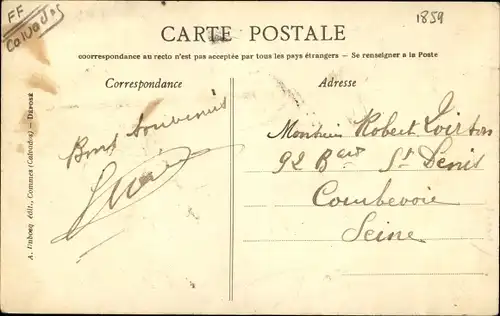 FF
Calvados
1859
CARTE POSTALE
coorrespondance au recto n'est pas acceptée par tous les pays étrangers — Se renseigner a la Poste
Correspondance
Adresse
A. Dubosq édit., Commes (Calvados) — DÉPOSÉ
Bons souvenirs
Monsieur Robert Loirton
92 Bard St Denis
Courbevoie
Seine